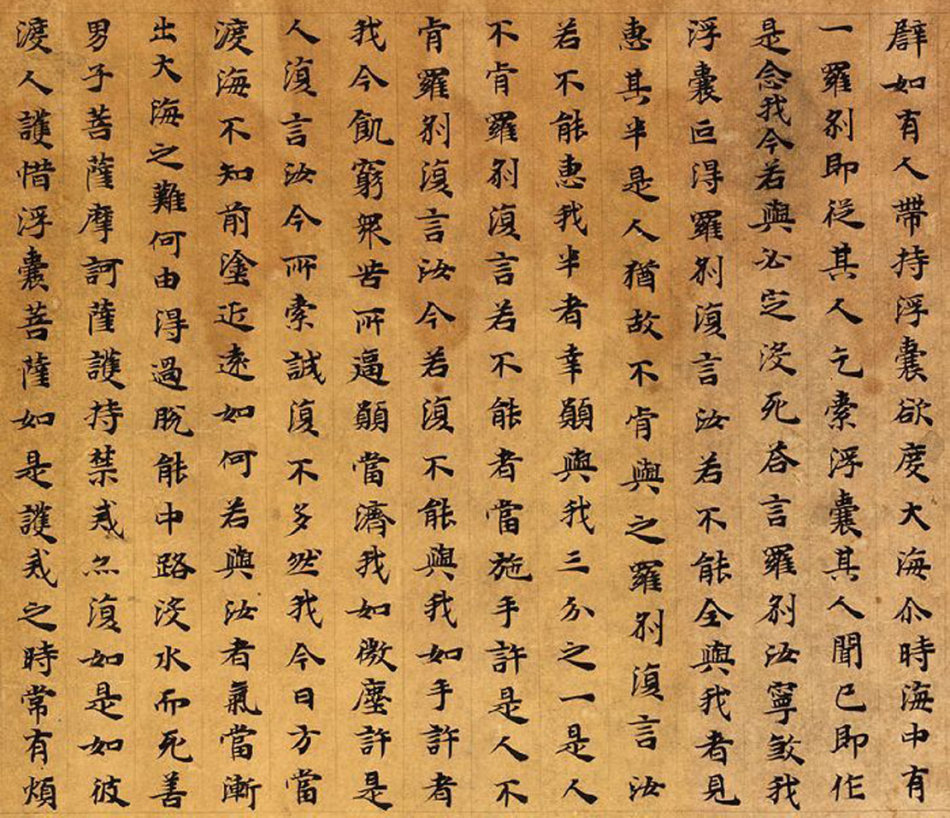 譬如有人帶持浮囊欲度大海尒時海中有
一羅刹即從其人乞索浮囊其人聞已即作
是念我今若與必定没死荅言羅刹汝寧煞我
浮囊叵得羅刹復言汝若不能全與我者見
惠其半是人猶故不肯與之羅刹復言汝
若不能惠我半者幸願與我三分之一是人
不肯羅刹復言若不能者當施手許是人不
肯羅刹復言汝今若復不能與我如手許者
我今飢窮衆苦所逼願當濟我如微塵許是
人復言汝今所索誠復不多然我今日方當
渡海不知前塗近遠如何若與汝者氣當漸
出大海之難何由得過脫能中路没水而死善
男子菩薩摩訶薩護持禁戒亦復如是如彼
渡人護惜浮囊菩薩如是護戒之時常有煩